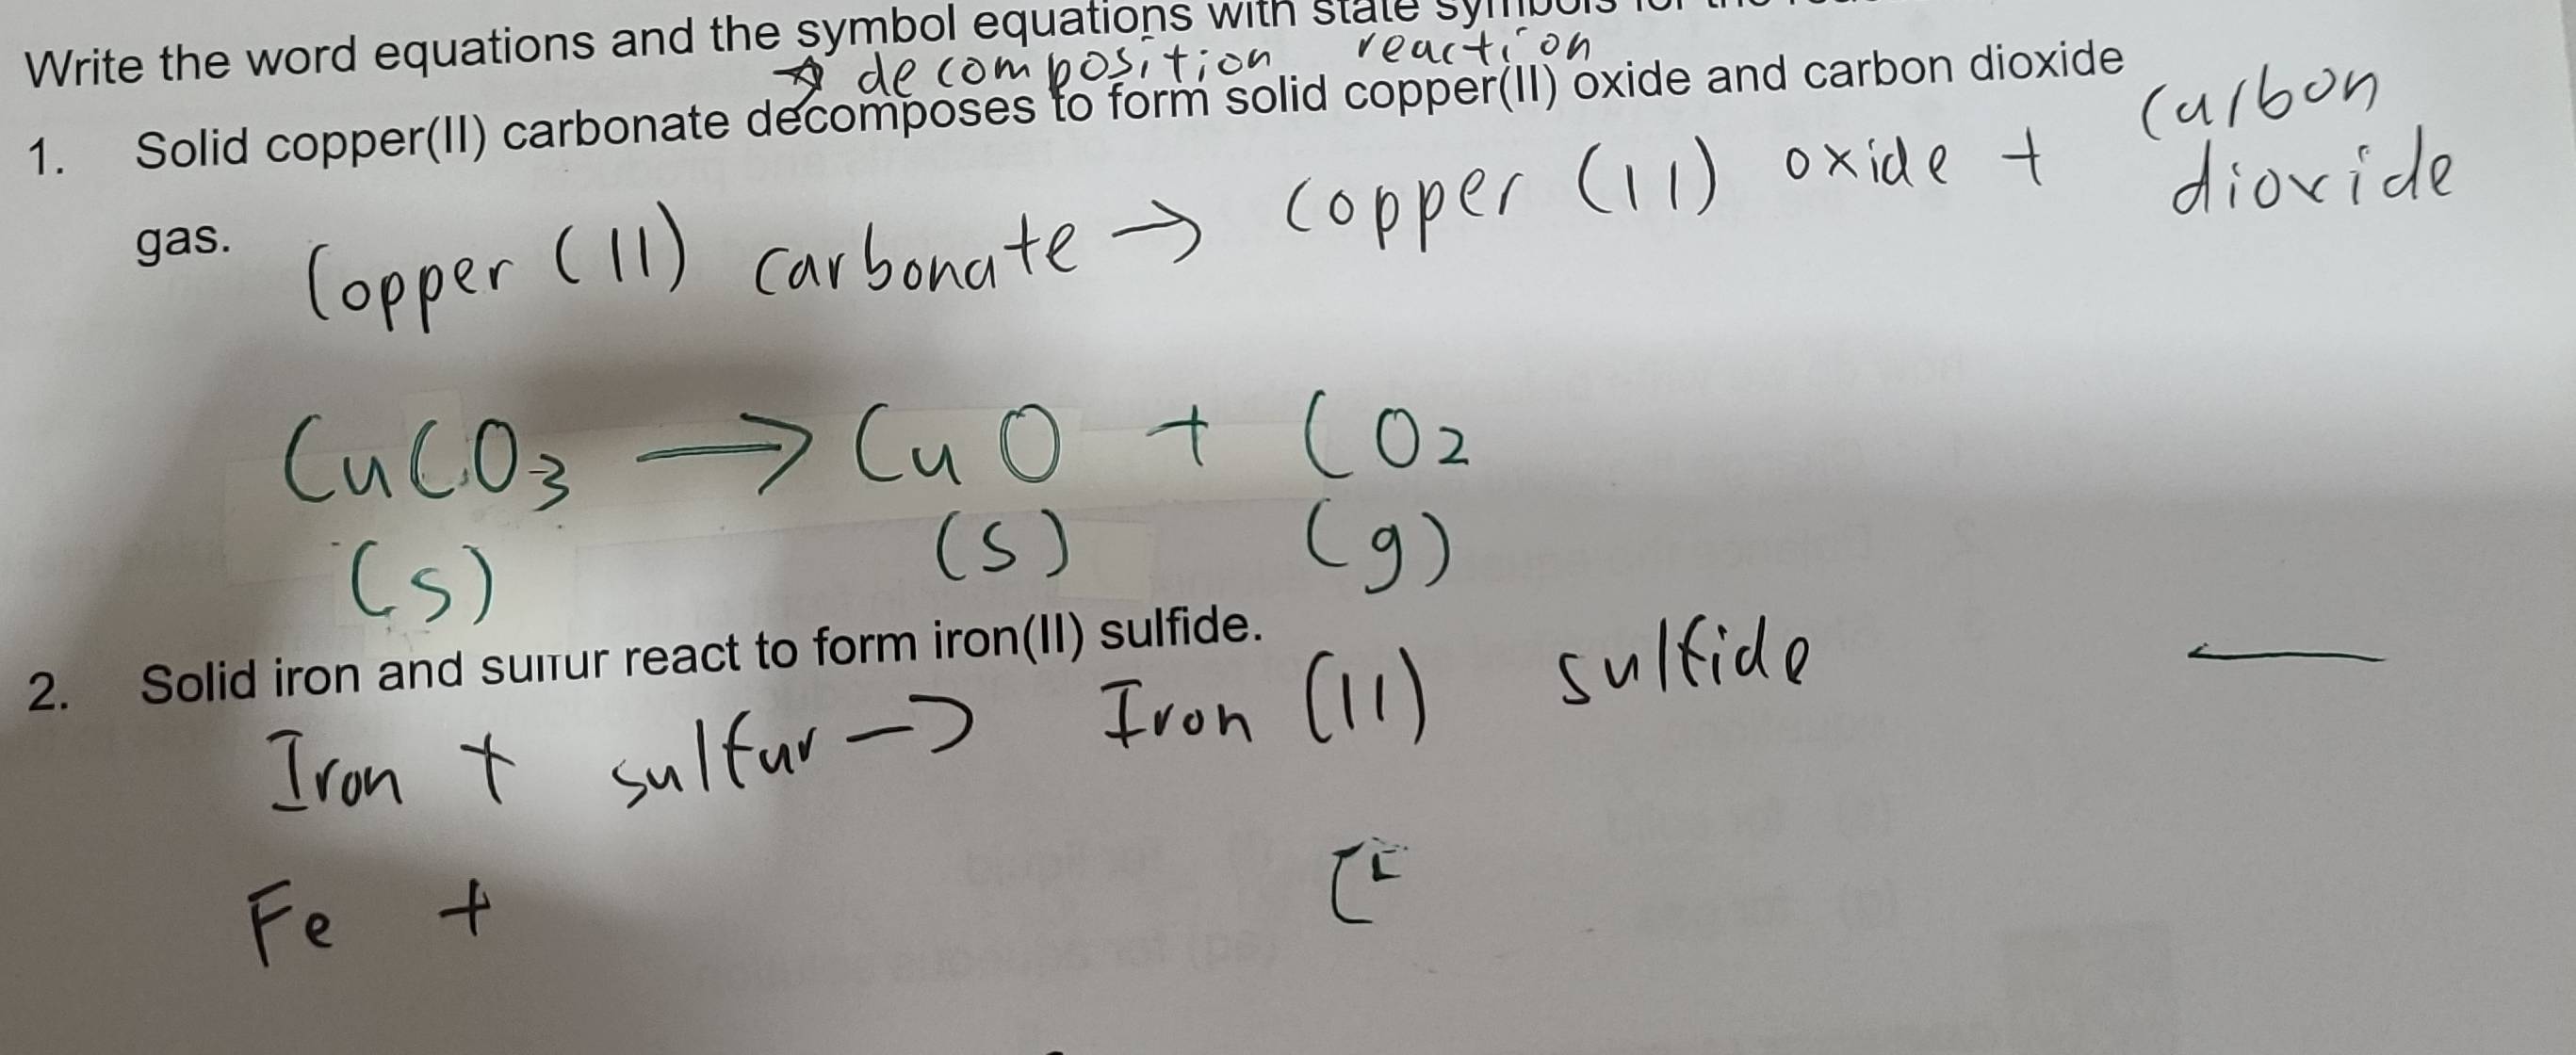 Write the word equations and the symbol equations with state symbols for the
☆ decomposition reaction
1. Solid copper(II) carbonate decomposes to form solid copper(II) oxide and carbon dioxide
gas.
Copper (II) carbonate → copper (II) oxide + carbon dioxide
CuCO₃ → CuO + CO₂
(s) (s) (g)
2. Solid iron and sulfur react to form iron(II) sulfide.
Iron + sulfur → Iron (II) sulfide
Fe +